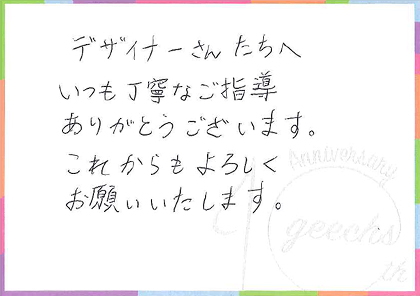 デザイナーさんたちへ
いつも丁寧なご指導
ありがとうございます。
これからもよろしく
お願いいたします。
Anniversary
geechs
th